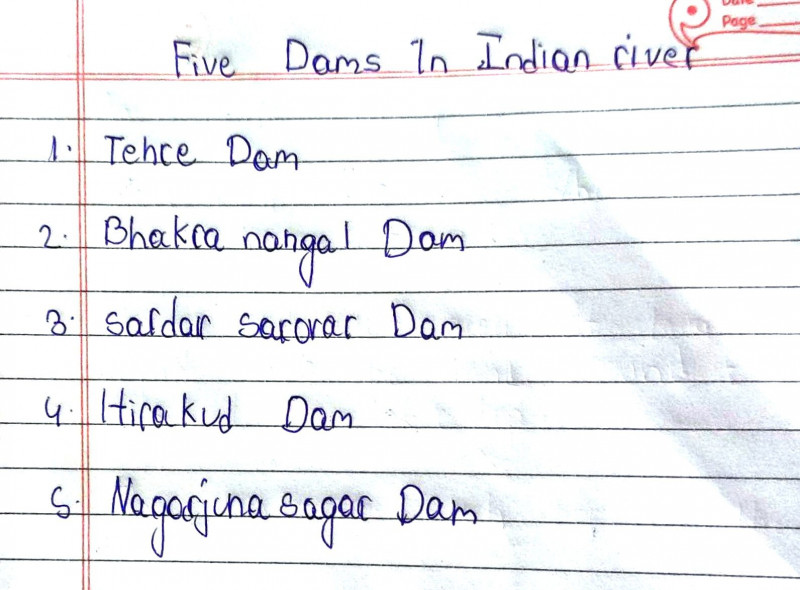 Date
Page
Five Dams In Indian river
1. Tehre Dam
2. Bhakra nangal Dam
3. sardar sarovar Dam
4. Hirakud Dam
5. Nagarjuna sagar Dam